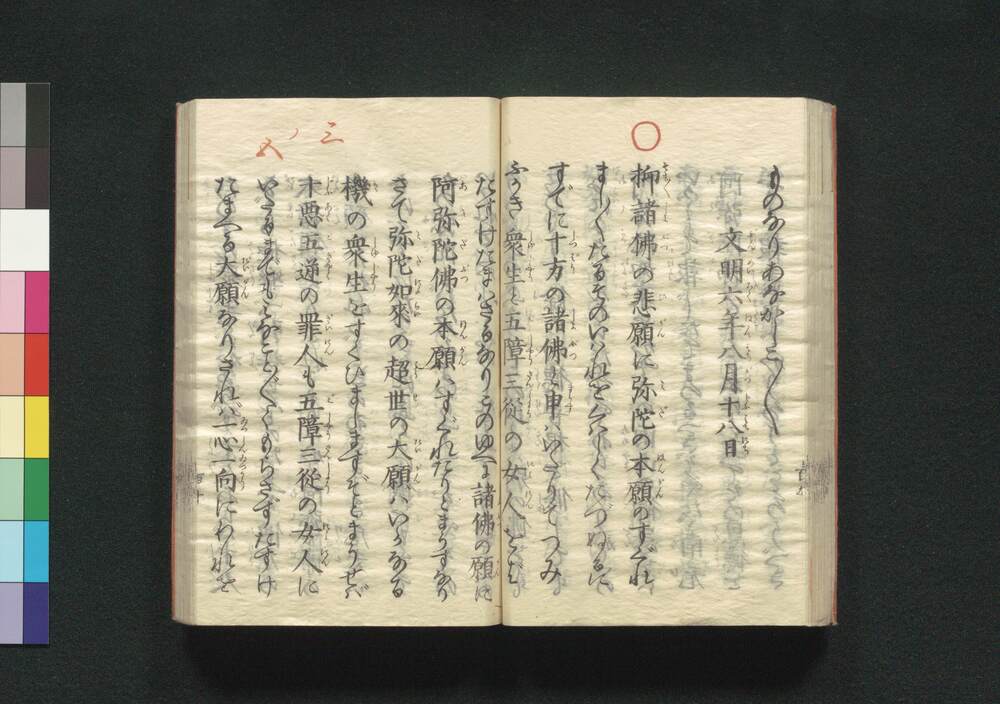 ものなりあなかしこ〳〵
文明六年八月十八日
抑諸佛の悲願に弥陀の本願のすぐれ
ましくたるそのいはれをくはしくたづぬるに
すでに十方の諸佛と申はいたりてつみ
ふかき衆生と五障三従の女人をば
たすけたまはざるなりこのゆへに諸佛の願は
阿弥陀佛の本願にすぐれたりとまうすなり
さて弥陀如來の超世の大願はいかなる
機の衆生をすくひましますぞとまうせば
十悪五逆の罪人も五障三従の女人に
いたるまでもみなことごとくもらさずたすけ
たまへる大願なりされば一心一向にわれを
三ノ五